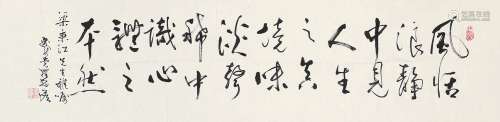 風恬
浪靜
中見
人生
之真
境味
淡聲
稀中
識心
體之
本然
梁東江先生雅屬